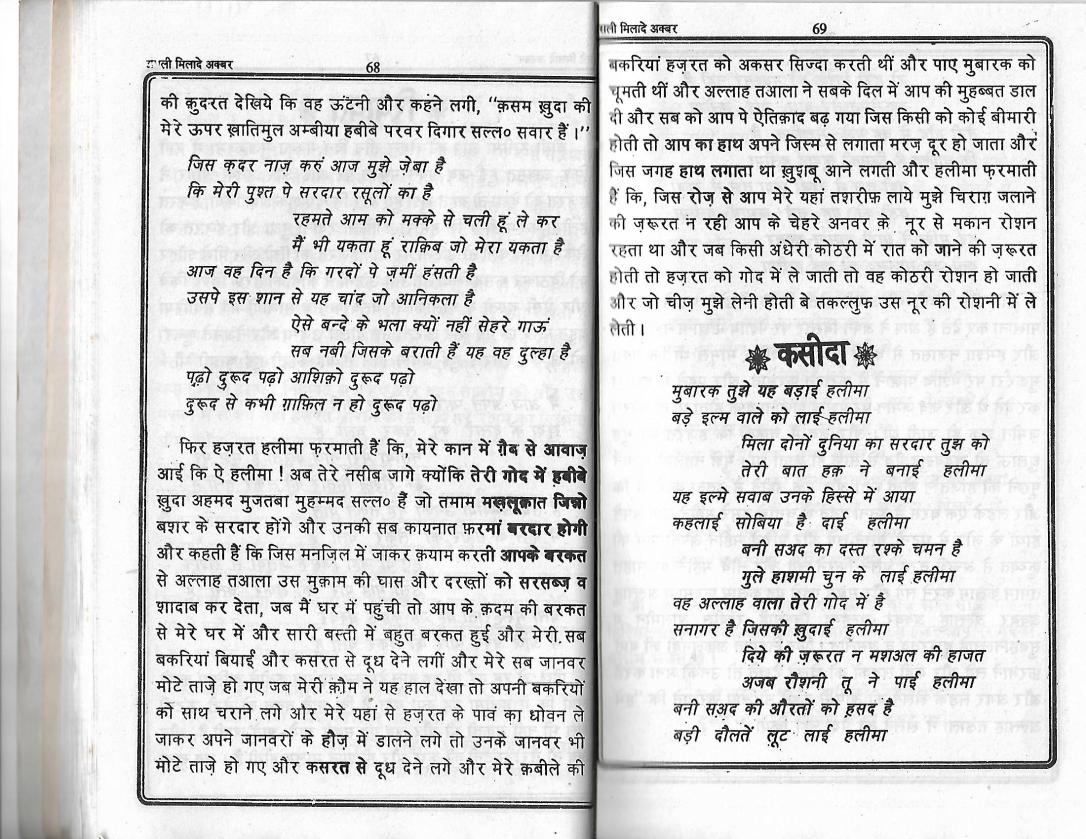 मिलादे अक्बर
68
की क़ुदरत देखिये कि वह ऊंटनी और कहने लगी, "क़सम ख़ुदा की
मेरे ऊपर ख़ातिमुल अम्बीया हबीबे परवर दिगार सल्ल० सवार हैं ।"
जिस कदर नाज़ करुं आज मुझे ज़ेबा है
कि मेरी पुश्त पे सरदार रसूलों का है
रहमते आम को मक्के से चली हूं ले कर
मैं भी यकता हूं राक़िब जो मेरा यकता है
आज वह दिन है कि गरदों पे ज़मीं हंसती है
उसपे इस शान से यह चांद जो आनिकला है
ऐसे बन्दे के भला क्यों नहीं सेहरे गाऊं
सब नबी जिसके बराती हैं यह वह दुल्हा है
पढ़ो दुरूद पढ़ो आशिक़ो दुरूद पढ़ो
दुरूद से कभी ग़ाफ़िल न हो दुरूद पढ़ो
फिर हज़रत हलीमा फ़रमाती हैं कि, मेरे कान में ग़ैब से आवाज़
आंई कि ऐ हलीमा ! अब तेरे नसीब जागे क्योंकि तेरी गोद में हबीबे
ख़ुदा अहमद मुजतबा मुहम्मद सल्ल० हैं जो तमाम मख़लूक़ात जिन्नो
बशर के सरदार होंगे और उनकी सब कायनात फ़रमां बरदार होगी
और कहती हैं कि जिस मनज़िल में जाकर क़याम करती आपके बरकत
से अल्लाह तआला उस मुक़ाम की घास और दरख़्तों को सरसब्ज़ व
शादाब कर देता, जब मैं घर में पहुंची तो आप के क़दम की बरकत
से मेरे घर में और सारी बस्ती में बहुत बरकत हुई और मेरी सब
बकरियां बियाईं और कसरत से दूध देने लगीं और मेरे सब जानवर
मोटे ताज़े हो गए जब मेरी क़ौम ने यह हाल देखा तो अपनी बकरियों
को साथ चराने लगे और मेरे यहां से हज़रत के पावं का धोवन ले
जाकर अपने जानवरों के हौज़ में डालने लगे तो उनके जानवर भी
मोटे ताज़े हो गए और कसरत से दूध देने लगे और मेरे क़बीले की
मिलादे अक्बर
69
बकरियां हज़रत को अकसर सिज्दा करती थीं और पाए मुबारक को
चूमती थीं और अल्लाह तआला ने सबके दिल में आप की मुहब्बत डाल
दी और सब को आप पे ऐतिक़ाद बढ़ गया जिस किसी को कोई बीमारी
होती तो आप का हाथ अपने जिस्म से लगाता मरज़ दूर हो जाता और
जिस जगह हाथ लगाता था ख़ुशबू आने लगती और हलीमा फ़रमाती
हैं कि, जिस रोज़ से आप मेरे यहां तशरीफ़ लाये मुझे चिराग़ जलाने
की ज़रूरत न रही आप के चेहरे अनवर के नूर से मकान रोशन
रहता था और जब किसी अंधेरी कोठरी में रात को जाने की ज़रूरत
होती तो हज़रत को गोद में ले जाती तो वह कोठरी रोशन हो जाती
और जो चीज़ मुझे लेनी होती बे तकल्लुफ उस नूर की रोशनी में ले
लेती ।
कसीदा
मुबारक तुझे यह बड़ाई हलीमा
बड़े इल्म वाले को लाई हलीमा
मिला दोनों दुनिया का सरदार तुझ को
तेरी बात हक़ ने बनाई हलीमा
यह इल्मे सवाब उनके हिस्से में आया
कहलाई सोबिया है दाई हलीमा
बनी सअद का दस्त रश्के चमन है
गुले हाशमी चुन के लाई हलीमा
वह अल्लाह वाला तेरी गोद में है
सनागर है जिसकी ख़ुदाई हलीमा
दिये की ज़रूरत न मशअल की हाजत
अजब रौशनी तू ने पाई हलीमा
बनी सअद की औरतों को हसद है
बड़ी दौलतें लूट लाई हलीमा